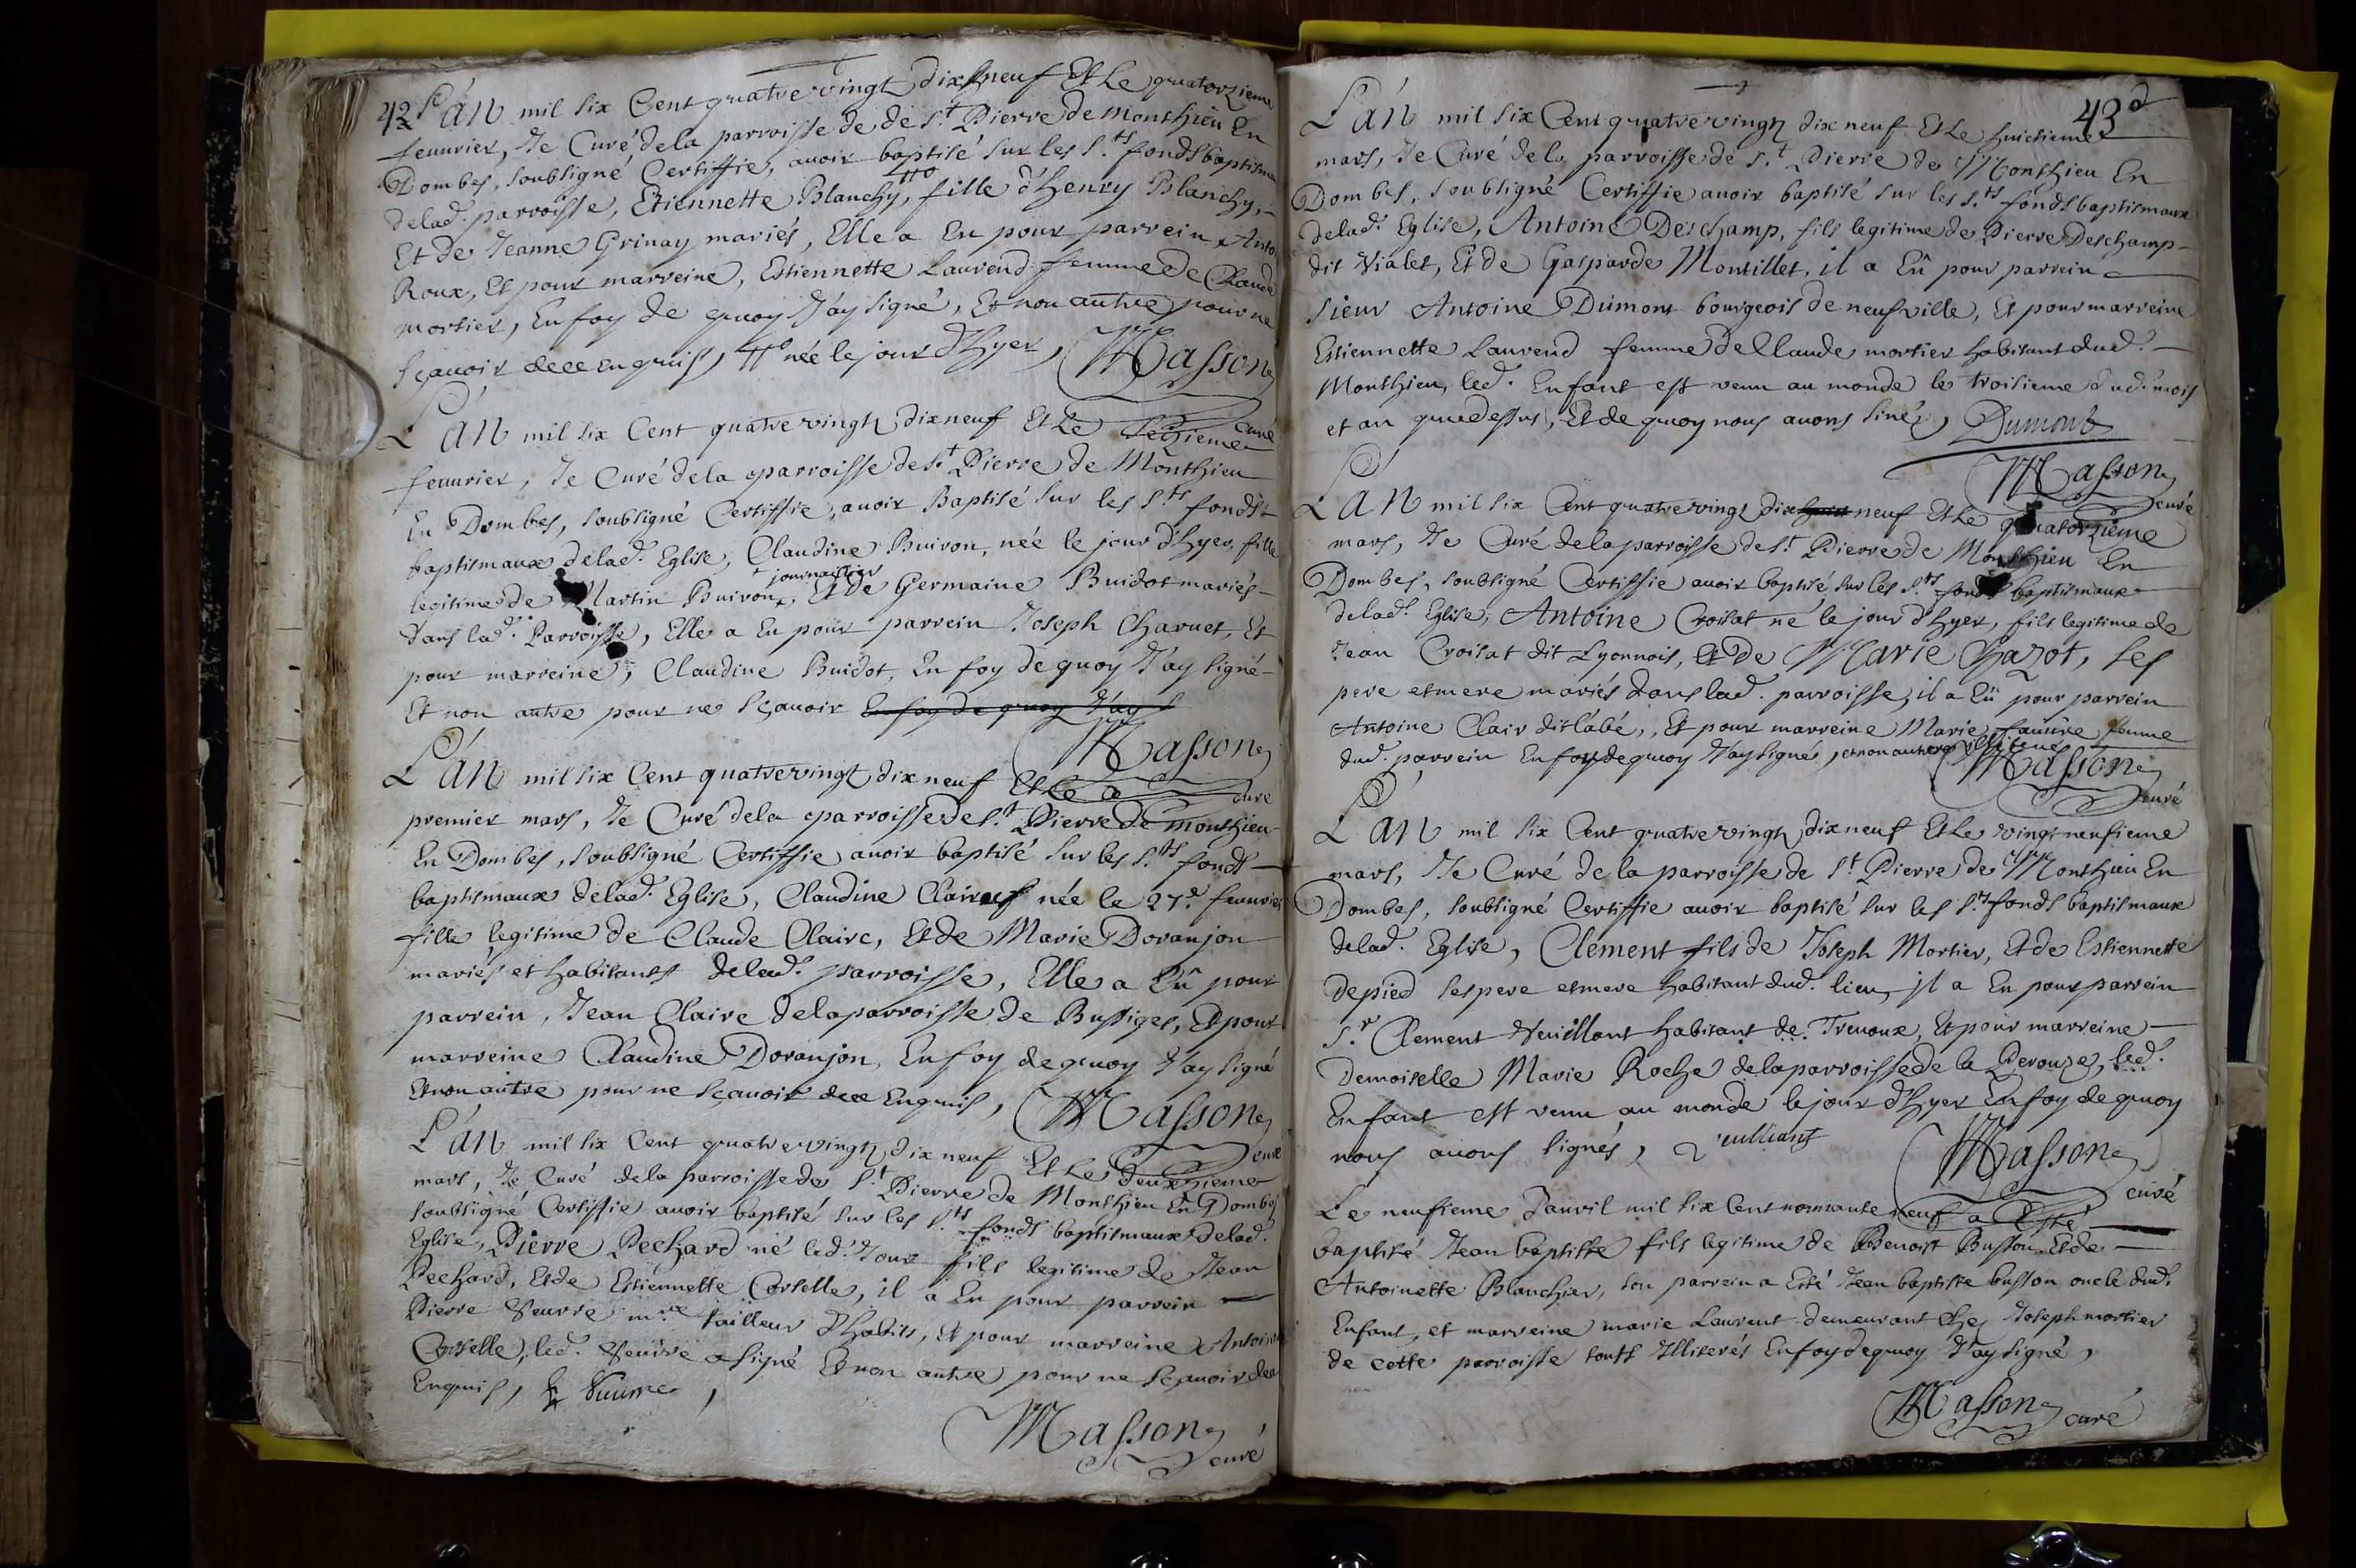 42
L'an mil six Cent quatre vingt dix neuf Et Le quatorzieme
feuurier, Je Curé de la parroisse de de S.t Pierre de Monthieu En
Dombes, soubsigné Certiffie, auoir baptisé sur les S.ts fonds baptismaux
delad. parroisse, Etiennette Blanchy, # fille d'Henry Blanchy,
Et de Jeanne Grinay mariés, Elle a Eu pour parrein Antoi
Roux, Et pour marreine, Estiennette Laurend femme de Claude
mortier, En foy de quoy J'ay signé, Et non autre pour ne
sçauoir de ce enquis, # née le jour d'hyer, Masson
curé
L'an mil six Cent quatre vingt dix neuf Et Le seizieme
feuurier, Je Curé de la parroisse de S.t Pierre de Monthieu
En Dombes, soubsigné Certiffie, auoir Baptisé sur les S.ts fonds
baptismaux delad. Eglise, Claudine Buiron, née le jour d'hyer, fille
legitime de Martin Buiron + journaillier, Et de Germaine Buidot mariés
dans lad. Parroisse, Elle a Eu pour parrein Joseph Charuet, Et
pour marreine, Claudine Buidot, En foy de quoy J'ay signé
Et non autre pour ne sçauoir En foy de quoy J'ay s
Masson
curé
L'an mil six Cent quatre vingt dix neuf Et Le
premier mars, Je Curé dela parroisse de S.t Pierre de monthieu
En Dombes, soubsigné Certiffie auoir baptisé sur les S.ts fonds
baptismaux delad. Eglise, Claudine Claire née le 27.e feuurier
fille legitime de Claude Claire, Et de Marie Doranjon
mariés et habitants delad. parroisse, Elle a Eû pour
parrein, Jean Claire dela parroisse de Bussiges, Et pour
marreine Claudine Doranjon, En foy de quoy J'ay signé
Et non autre pour ne sçauoir de ce Enquis, Masson
curé
L'an mil six Cent quatre vingt dix neuf Et Le deuxzieme
mars, Je Curé dela parroisse de S.t Pierre de Monthieu En Dombes
soubsigné Certiffie auoir baptisé sur les S.ts fonds baptismaux delad.
Eglise, Pierre Pechard né led. Jour fils legitime de Jean
Pechard, Et de Estiennette Cortelle, il a Eu pour parrein
Pierre Veuvre m.re tailleur d'habits, Et pour marreine Antoine
Cortelle, led. Veuvre a signé Et non autre pour ne sçauoir de ce
Enquis,
Masson
curé
43
L'an mil six Cent quatre vingt dix neuf Et Le huictieme
mars, Je Curé de la parroisse de S.t Pierre de Monthieu En
Dombes, soubsigné Certiffie auoir baptisé sur les S.ts fonds baptismaux
delad. Eglise, Antoine Deschamp, fils legitime de Pierre Deschamp
dit Vialet, Et de Gasparde Montillet, il a Eû pour parrein
sieur Antoine Dumont bourgeois de neufville, Et pour marreine
Estiennette Laurend femme de Claude mortier habitant dud.
Monthieu, led. Enfant est venu au monde le troisieme dud. mois
et an que dessus, Et de quoy nous auons siné, Dumont
Masson
curé
L'an mil six Cent quatre vingt dix neuf Et Le quatorzieme
mars, Je Curé dela parroisse de S.t Pierre de Monthieu En
Dombes, soubsigné Certiffie auoir baptisé sur les S.ts fonds baptismaux
delad. Eglise, Antoine Croisat né le jour d'hyer, fils legitime de
Jean Croisat dit Lyonnois, Et De Marie Chazot, ses
pere et mere mariés dans lad. parroisse, il a Eü pour parrein
Antoine Clair dit labé, Et pour marreine Marie fauure femme
dud. parrein En foy de quoy J'ay signé, et non autre
Masson
curé
L'an mil six Cent quatre vingt dix neuf Et Le vingt neufieme
mars, Je Curé de la parroisse de S.t Pierre de Monthieu En
Dombes, soubsigné Certiffie auoir baptisé sur les S.ts fonds baptismaux
delad. Eglise, Clement fils de Joseph Mortier, Et de Estiennette
Depied ses pere et mere habitant dud. lieu, il a Eu pour parrein
S.r Clement Veuillant habitant de Treuoux, Et pour marreine
Demoiselle Marie Roche dela parroisse de la Perouze, led.
Enfant est venu au monde le jour d'hyer En foy de quoy
nous auons signés, Veulliant
Masson
curé
Le neufieme d'auril mil six Cent nonnante neuf a Esté
baptisé Jean baptiste fils legitime de Benoist Busson, Et de
Antoinette Blanchier, son parrein a Esté Jean baptiste busson oncle dud.
Enfant, et marreine marie Laurent demeurant chez Joseph mortier
de cette parroisse touts Illiterés En foy de quoy J'ay signé,
Masson curé